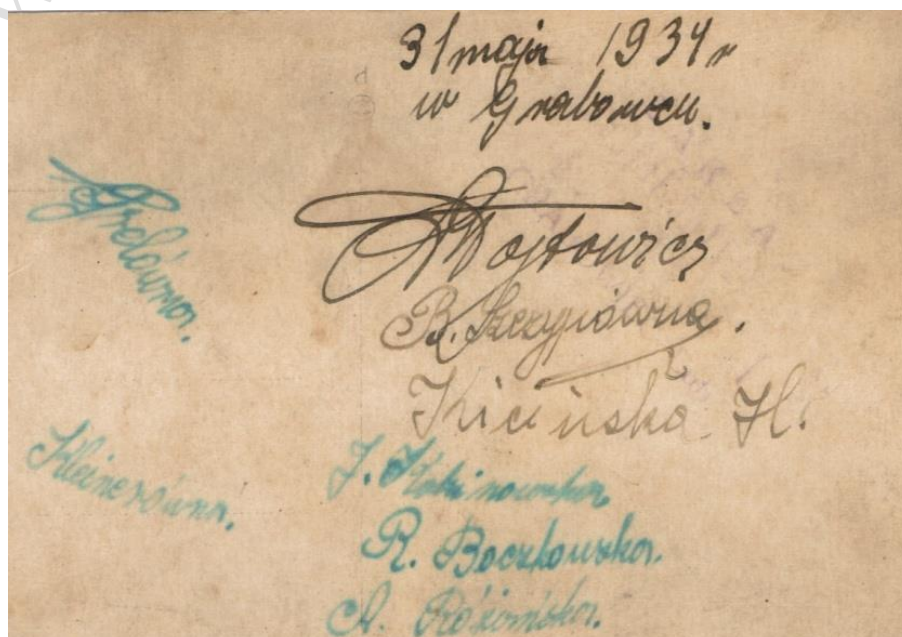 31 maja 1934 r
w Grabowcu.
Grelówna.
Wojtowicz
B. Szczypiówna.
Kicińska H.
Kleinerówna.
J.
R. Boczkowska.
A. Różańska.